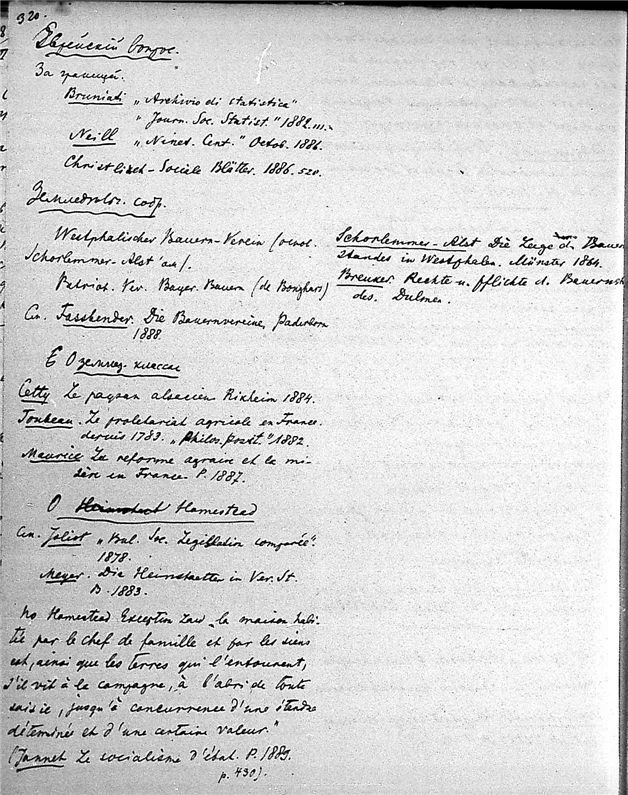 320.
Еврейскій вопрос.
За границей.
Bruniati „Archivio di statistica"
" Journ. Soc. Statist." 1882.III.
Neill „Ninet. Cent." Octob. 1886.
Christlich-Sociale Blätter. 1886. 520.
Землевлад. сообр.
Westphalischer Bauern-Verein
Schorlemmer-Alst'ом).
Patriot. Ver. Bayer. Bauern (de Bonghars)
См. Fassbender. Die Bauernvereine, Paderborn
1888.
Schorlemmer-Alst Die Lage d. Bauern
standes in Westphalen. Münster 1864.
Breuker. Rechte u. Pflichte d. Bauernst
des. Dulmen.
О землед. классах
Cetty Le paysan alsacien Rixheim 1884.
Toubeau. Le proletariat agricole en France
depuis 1789. „Philos. posit." 1882.
Maurice La reforme agraire et la mi-
sère en France. P. 1887.
О Homestead
См. Joliot „Bul. Soc. Legislation comparée".
1878.
Meyer. Die Heimstaetten in Ver. St.
B. 1883.
По Homestead Exception Law „la maison habi-
tée par le chef de famille et par les siens
est, ainsi que les terres qui l'entourent,
s'il vit à la campagne, à l'abri de toute
saisie, jusqu'à concurrence d'une étendue
déterminée et d'une certain valeur."
(Jannet Le socialisme d'état. P. 1889.
p. 430).